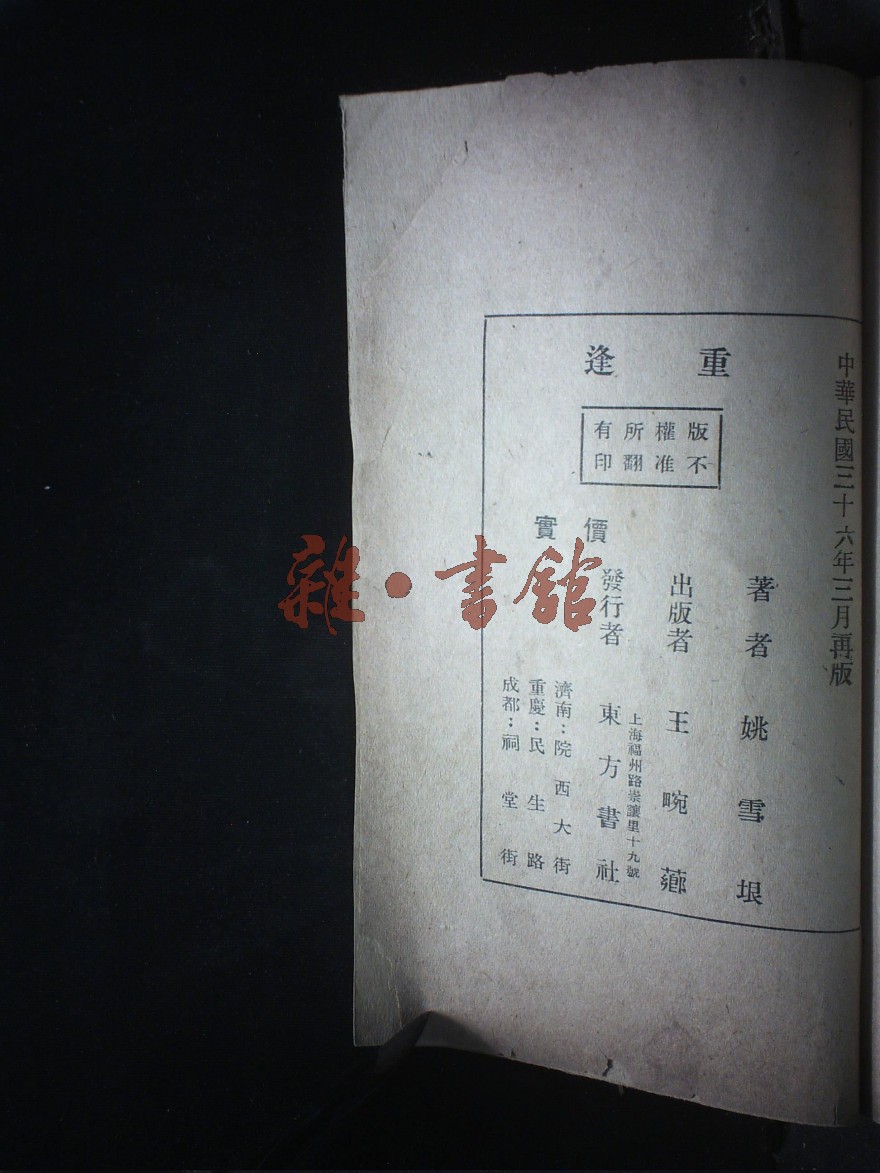 中華民國三十六年三月再版
重逢
版權所有
不准翻印
著者 姚雪垠
出版者 王畹薌
上海福州路崇讓里十九號
發行者 東方書社
價實
濟南：院西大街
重慶：民生路
成都：祠堂街
雜·書館